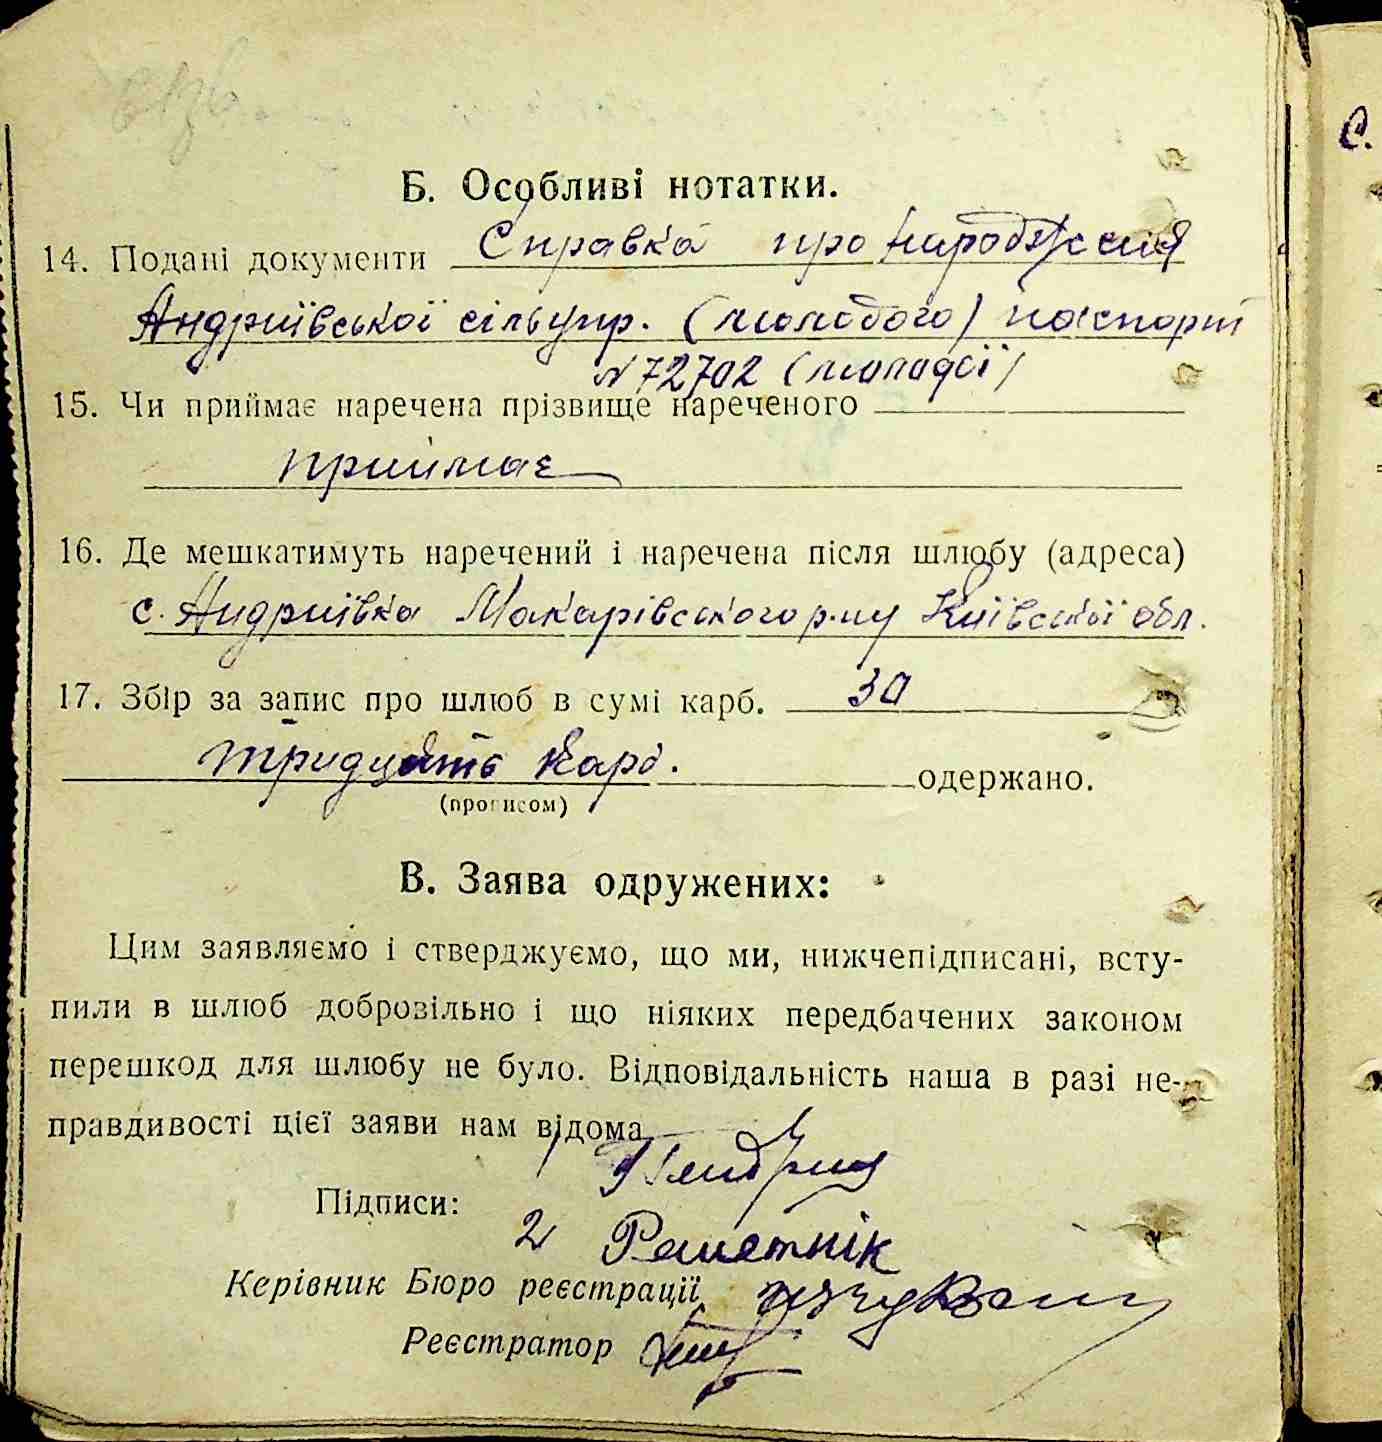 Б. Особливі нотатки.
14. Подані документи Справка про народження
Андриївської сільупр. (молодого) паспорт
№ 72702 (молодої)
15. Чи приймає наречена прізвище нареченого
приймає
16. Де мешкатимуть наречений і наречена після шлюбу (адреса)
с. Андриївка Макарівского р-ну Київської обл.
17. Збір за запис про шлюб в сумі карб. 30
тридцять карб. одержано.
(прописом)
В. Заява одружених:
Цим заявляємо і стверджуємо, що ми, нижчепідписані, всту-
пили в шлюб добровільно і що ніяких передбачених законом
перешкод для шлюбу не було. Відповідальність наша в разі не-
правдивості цієї заяви нам відома
Підписи:
2 Решетнік
Керівник Бюро реєстрації
Реєстратор
С.